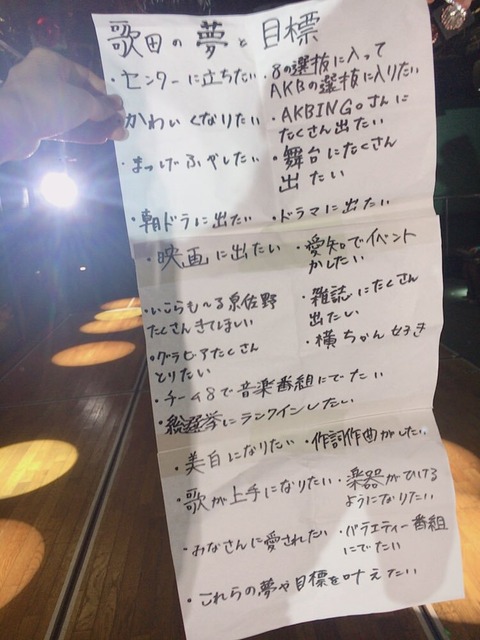 歌田の夢と目標
・センターに立ちたい
・8の選抜に入って
AKBの選抜に入りたい
・かわいくなりたい
・AKBINGOさんに
たくさん出たい
・まつげふやしたい
・舞台にたくさん
出たい
・朝ドラに出たい
・ドラマに出たい
・映画に出たい
・愛知でイベント
がしたい
・いこらも〜る泉佐野
たくさんきてほしい
・雑誌にたくさん
出たい
・グラビアたくさん
とりたい
・横ちゃん好き
・チーム8で音楽番組にでたい
・総選挙にランクインしたい
・美白になりたい
・作詞作曲がしたい
・歌が上手になりたい
・楽器がひける
ようになりたい
・みなさんに愛されたい
・バラエティー番組
にでたい
・これらの夢や目標を叶えたい